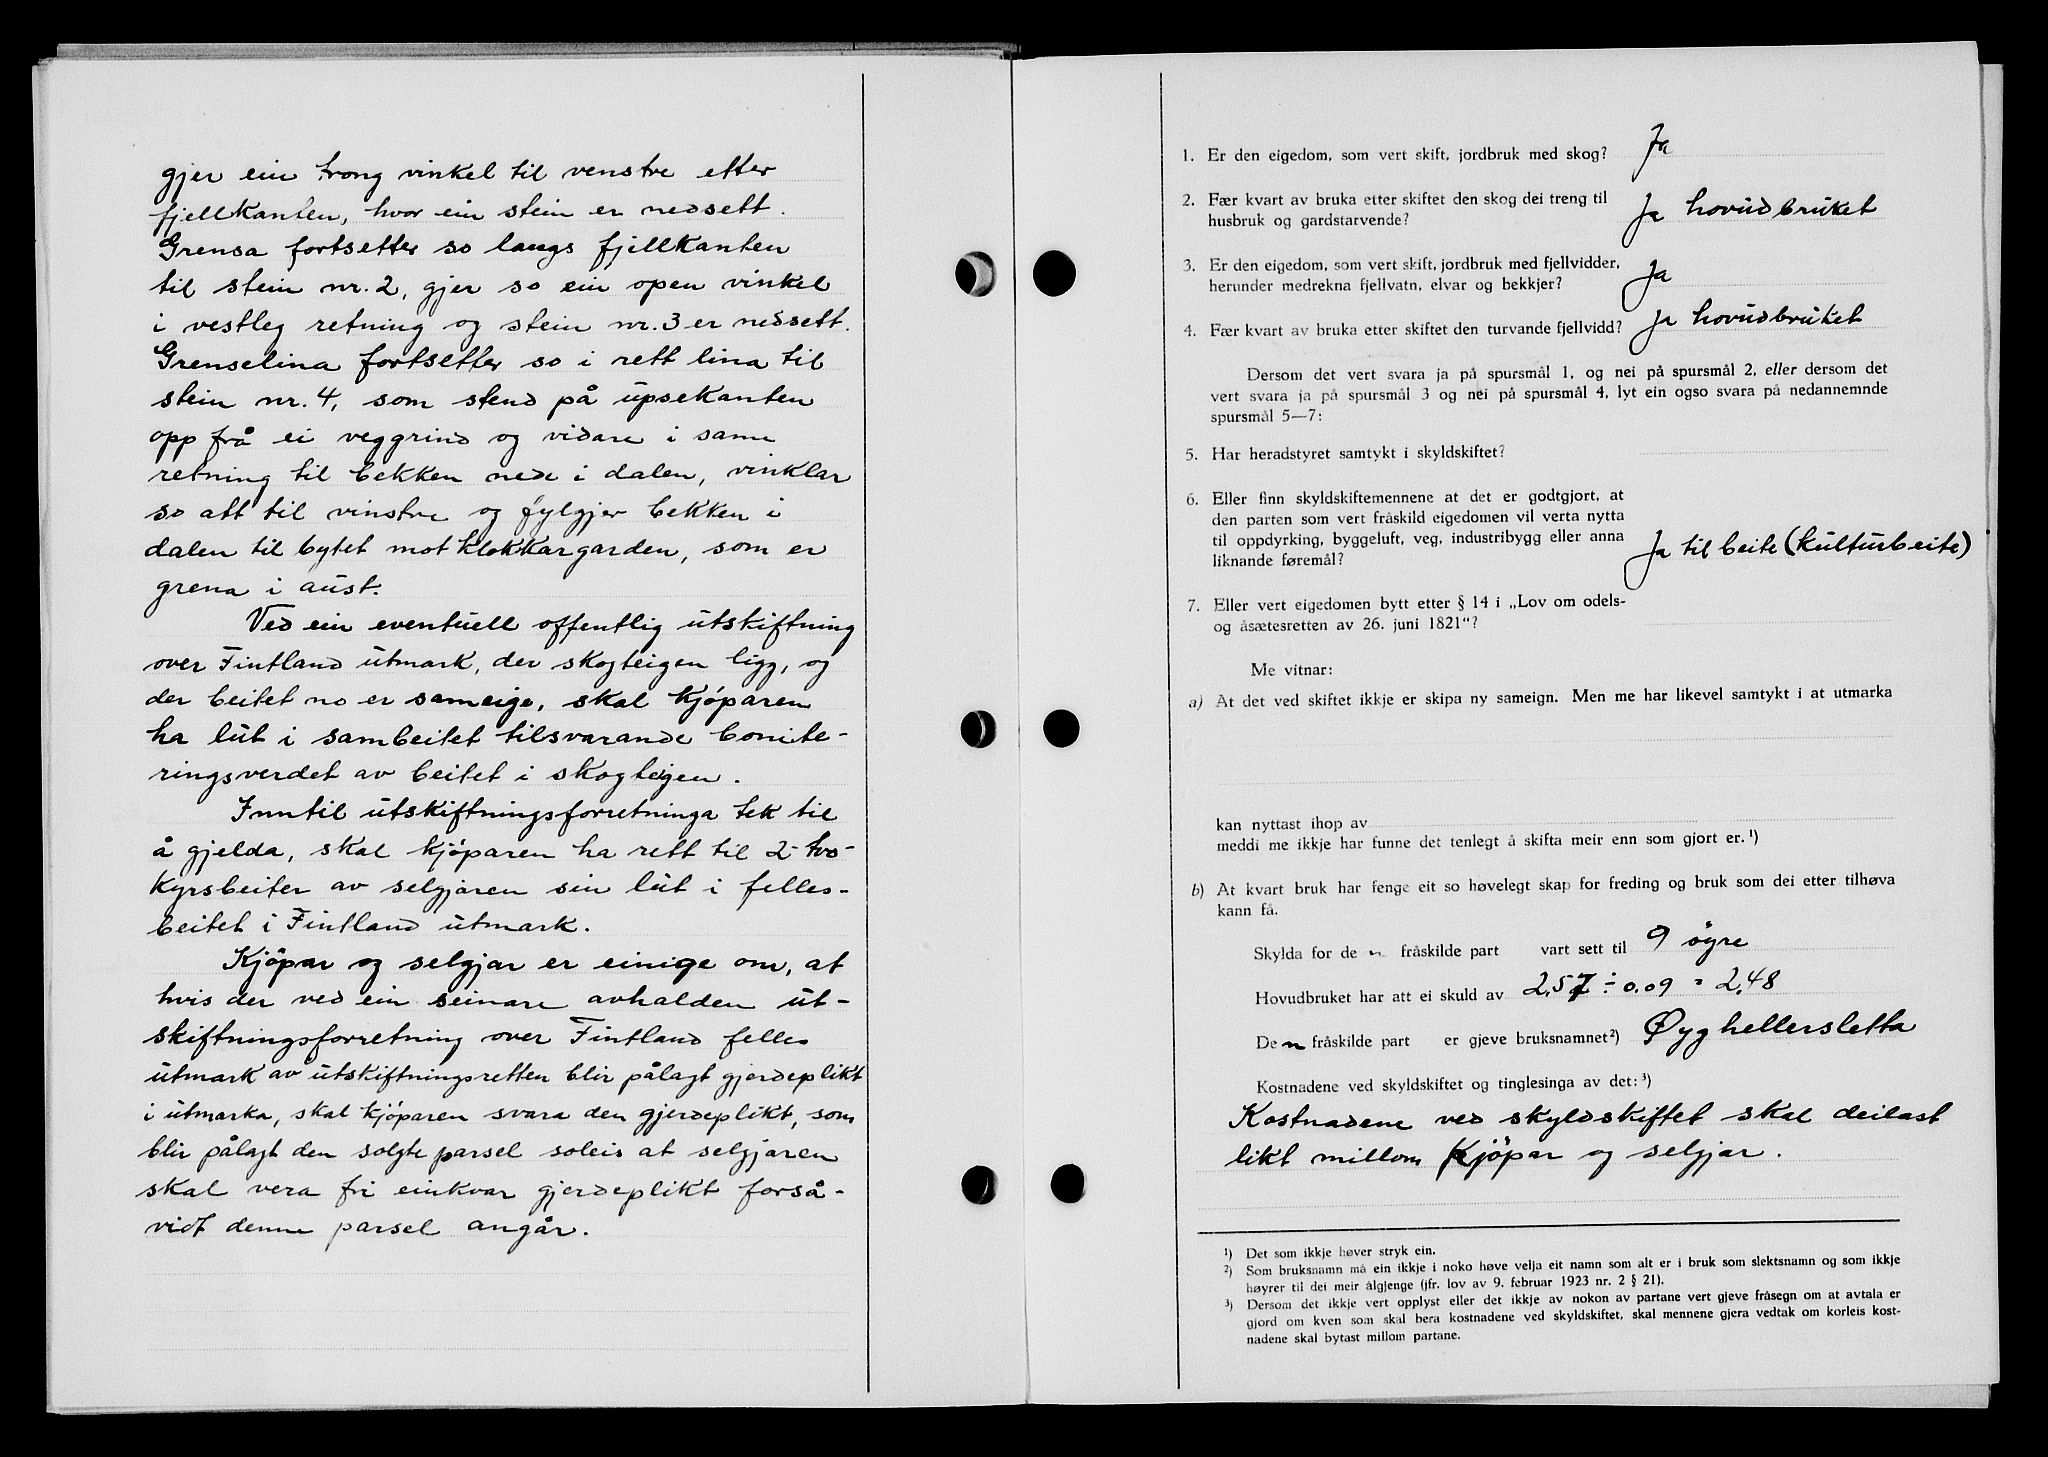 gjer ein trong vinkel til venstre etter
fjellkanten, hvor ein stein er nedsett.
Grensa fortsetter so langs fjellkanten
til stein nr. 2, gjer so ein open vinkel
i vestleg retning og stein nr. 3 er nedsett.
Grenselina fortsetter so i rett lina til
stein nr. 4, som stend på upsekanten
opp frå ei veggrind og vidare i same
retning til bekken nede i dalen, vinklar
so att til vinstre og fylgjer bekken i
dalen til bytet mot Klokkargarden, som er
grena i aust.
Ved ein eventuell offentlig utskiftning
over Fintland utmark, der skogteigen ligg, og
der beitet no er sameige, skal kjóparen
ha lut i sambeitet tilsvarande bonite-
ringsverdet av beitet i skogteigen.
Inntil utskiftningsforretninga tek til
å gjelda, skal kjóparen ha rett til 2-tvo-
kyrsbeiter av selgjaren sin lut i felles-
beitet i Fintland utmark.
Kjöpar og selgjar er einige om, at
hvis der ved ein seinare avhalden ut-
skiftningsforretning over Fintland felles
utmark av utskiftningsretten blir pålagt gjerdeplikt
i utmarka, skal kjóparen svara den gjerdeplikt, som
blir pålagt den solgte parsel soleis at selgjaren
skal vera fri einkvar gjerdeplikt forså-
vidt denne parsel angår.
1. Er den eigedom, som vert skift, jordbruk med skog? Ja
2. Fær kvart av bruka etter skiftet den skog dei treng til
husbruk og gardstarvende? Ja hovudbruket
3. Er den eigedom, som vert skift, jordbruk med fjellvidder,
herunder medrekna fjellvatn, elvar og bekkjer? Ja
4. Fær kvart av bruka etter skiftet den turvande fjellvidd? Ja hovudbruket
Dersom det vert svara ja på spursmål 1, og nei på spursmål 2, eller dersom det
vert svara ja på spursmål 3 og nei på spursmål 4, lyt ein ogso svara på nedannemnde
spursmål 5—7:
5. Har heradstyret samtykt i skyldskiftet?
6. Eller finn skyldskiftemennene at det er godtgjort, at
den parten som vert fråskild eigedomen vil verta nytta
til oppdyrking, byggeluft, veg, industribygg eller anna
liknande føremål? Ja til beite (kulturbeite)
7. Eller vert eigedomen bytt etter § 14 i „Lov om odels-
og åsætesretten av 26. juni 1821“?
Me vitnar:
a) At det ved skiftet ikkje er skipa ny sameign. Men me har likevel samtykt i at utmarka
kan nyttast ihop av
meddi me ikkje har funne det tenlegt å skifta meir enn som gjort er.¹)
b) At kvart bruk har fenge eit so høvelegt skap for freding og bruk som dei etter tilhøva
kann få.
Skylda for de n fråskilde part vart sett til 9 öyre
Hovudbruket har att ei skuld av 2,57 ÷ 0.09 = 2,48
De n fråskilde part er gjeve bruksnamnet²) Øyghellersletta
Kostnadene ved skyldskiftet og tinglesinga av det:³)
Kostnadene ved skyldskiftet skal deilast
likt millom Kjöpar og selgjar.
¹) Det som ikkje høver stryk ein.
²) Som bruksnamn må ein ikkje i noko høve velja eit namn som alt er i bruk som slektsnamn og som ikkje
høyrer til dei meir ålgjenge (jfr. lov av 9. februar 1923 nr. 2 § 21).
³) Dersom det ikkje vert opplyst eller det ikkje av nokon av partane vert gjeve fråsegn om at avtala er
gjord om kven som skal bera kostnadene ved skyldskiftet, skal mennene gjera vedtak om korleis kost-
nadene skal bytast millom partane.